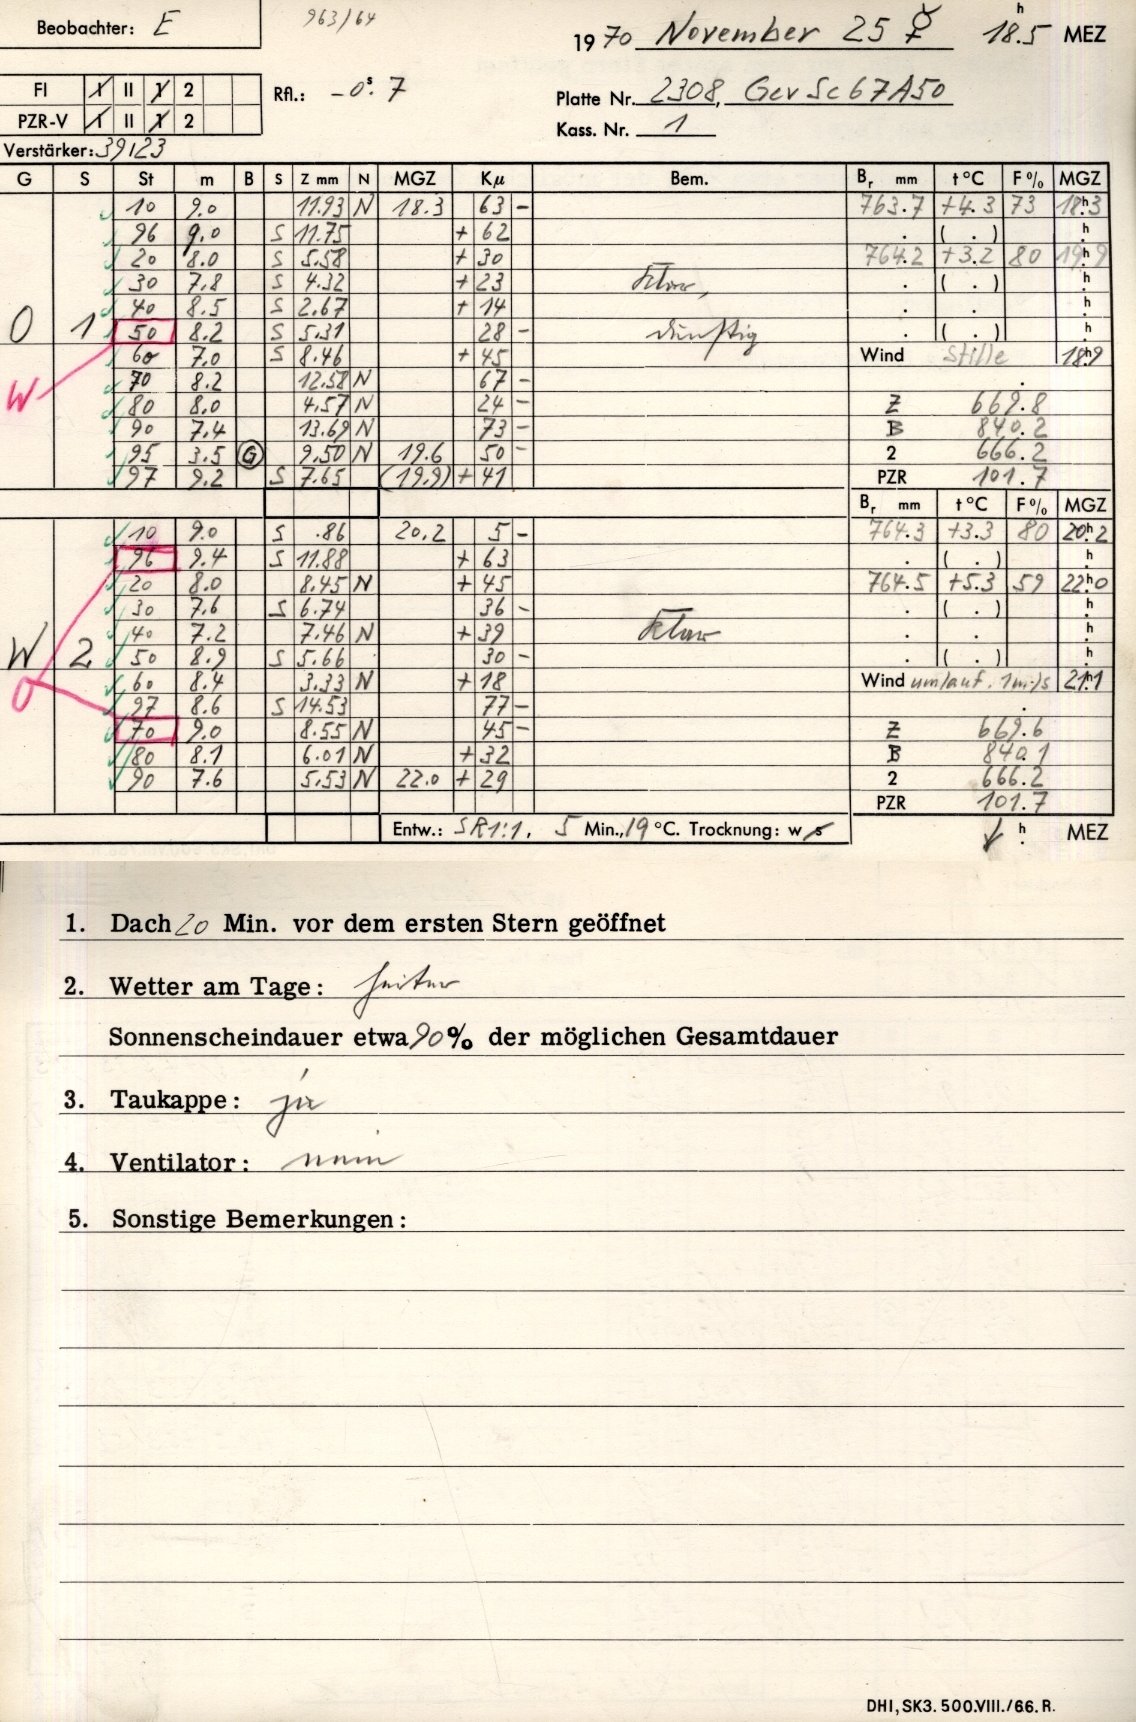 Beobachter: E 963/64
1970 November 25 ☿ 18.5 h MEZ
FI I II 1 2 Rfl.: -0.s7
PZR-V I II 1 2
Platte Nr. 2308, Gev Sc67A50
Kass. Nr. 1
Verstärker: 39123
G S St m B S Z mm N MGZ Kμ Bem. Br mm t°C F% MGZ
10 9.0 11.93 N 18.3 63 - 763.7 +4.3 73 18h3
96 9.0 S 11.75 + 62 . ( . ) h
20 8.0 S 5.58 + 30 764.2 +3.2 80 19h9
30 7.8 S 4.32 + 23 klar, . ( . ) h
40 8.5 S 2.67 + 14 . . h
O 1 50 8.2 S 5.31 28 - dunstig . ( . ) h
60 7.0 S 8.46 + 45 Wind Stille 18h9
W 70 8.2 12.58 N 67 - .
80 8.0 4.57 N 24 - Z 669.8
90 7.4 13.69 N 73 - B 840.2
95 3.5 G 9.50 N 19.6 50 - 2 666.2
97 9.2 S 7.65 (19.9) + 41 PZR 101.7
Br mm t°C F% MGZ
10 9.0 S .86 20.2 5 - 764.3 +3.3 80 20h2
96 9.4 S 11.88 + 63 . ( . ) h
20 8.0 8.45 N + 45 764.5 +5.3 59 22h0
30 7.6 S 6.74 36 - . ( . ) h
40 7.2 7.46 N + 39 klar . . h
W 2 50 8.9 S 5.66 30 - . ( . ) h
O 60 8.4 3.33 N + 18 Wind umlauf. 1m/s 21h1
97 8.6 S 14.53 77 - .
70 9.0 8.55 N 45 - Z 669.6
80 8.1 6.01 N + 32 B 840.1
90 7.6 5.53 N 22.0 + 29 2 666.2
PZR 101.7
Entw.: SR1:1, 5 Min., 19 °C. Trocknung: w s h MEZ
1. Dach 20 Min. vor dem ersten Stern geöffnet
2. Wetter am Tage: heiter
Sonnenscheindauer etwa 90% der möglichen Gesamtdauer
3. Taukappe: ja
4. Ventilator: nein
5. Sonstige Bemerkungen:
DHI, SK3. 500.VIII./66. R.